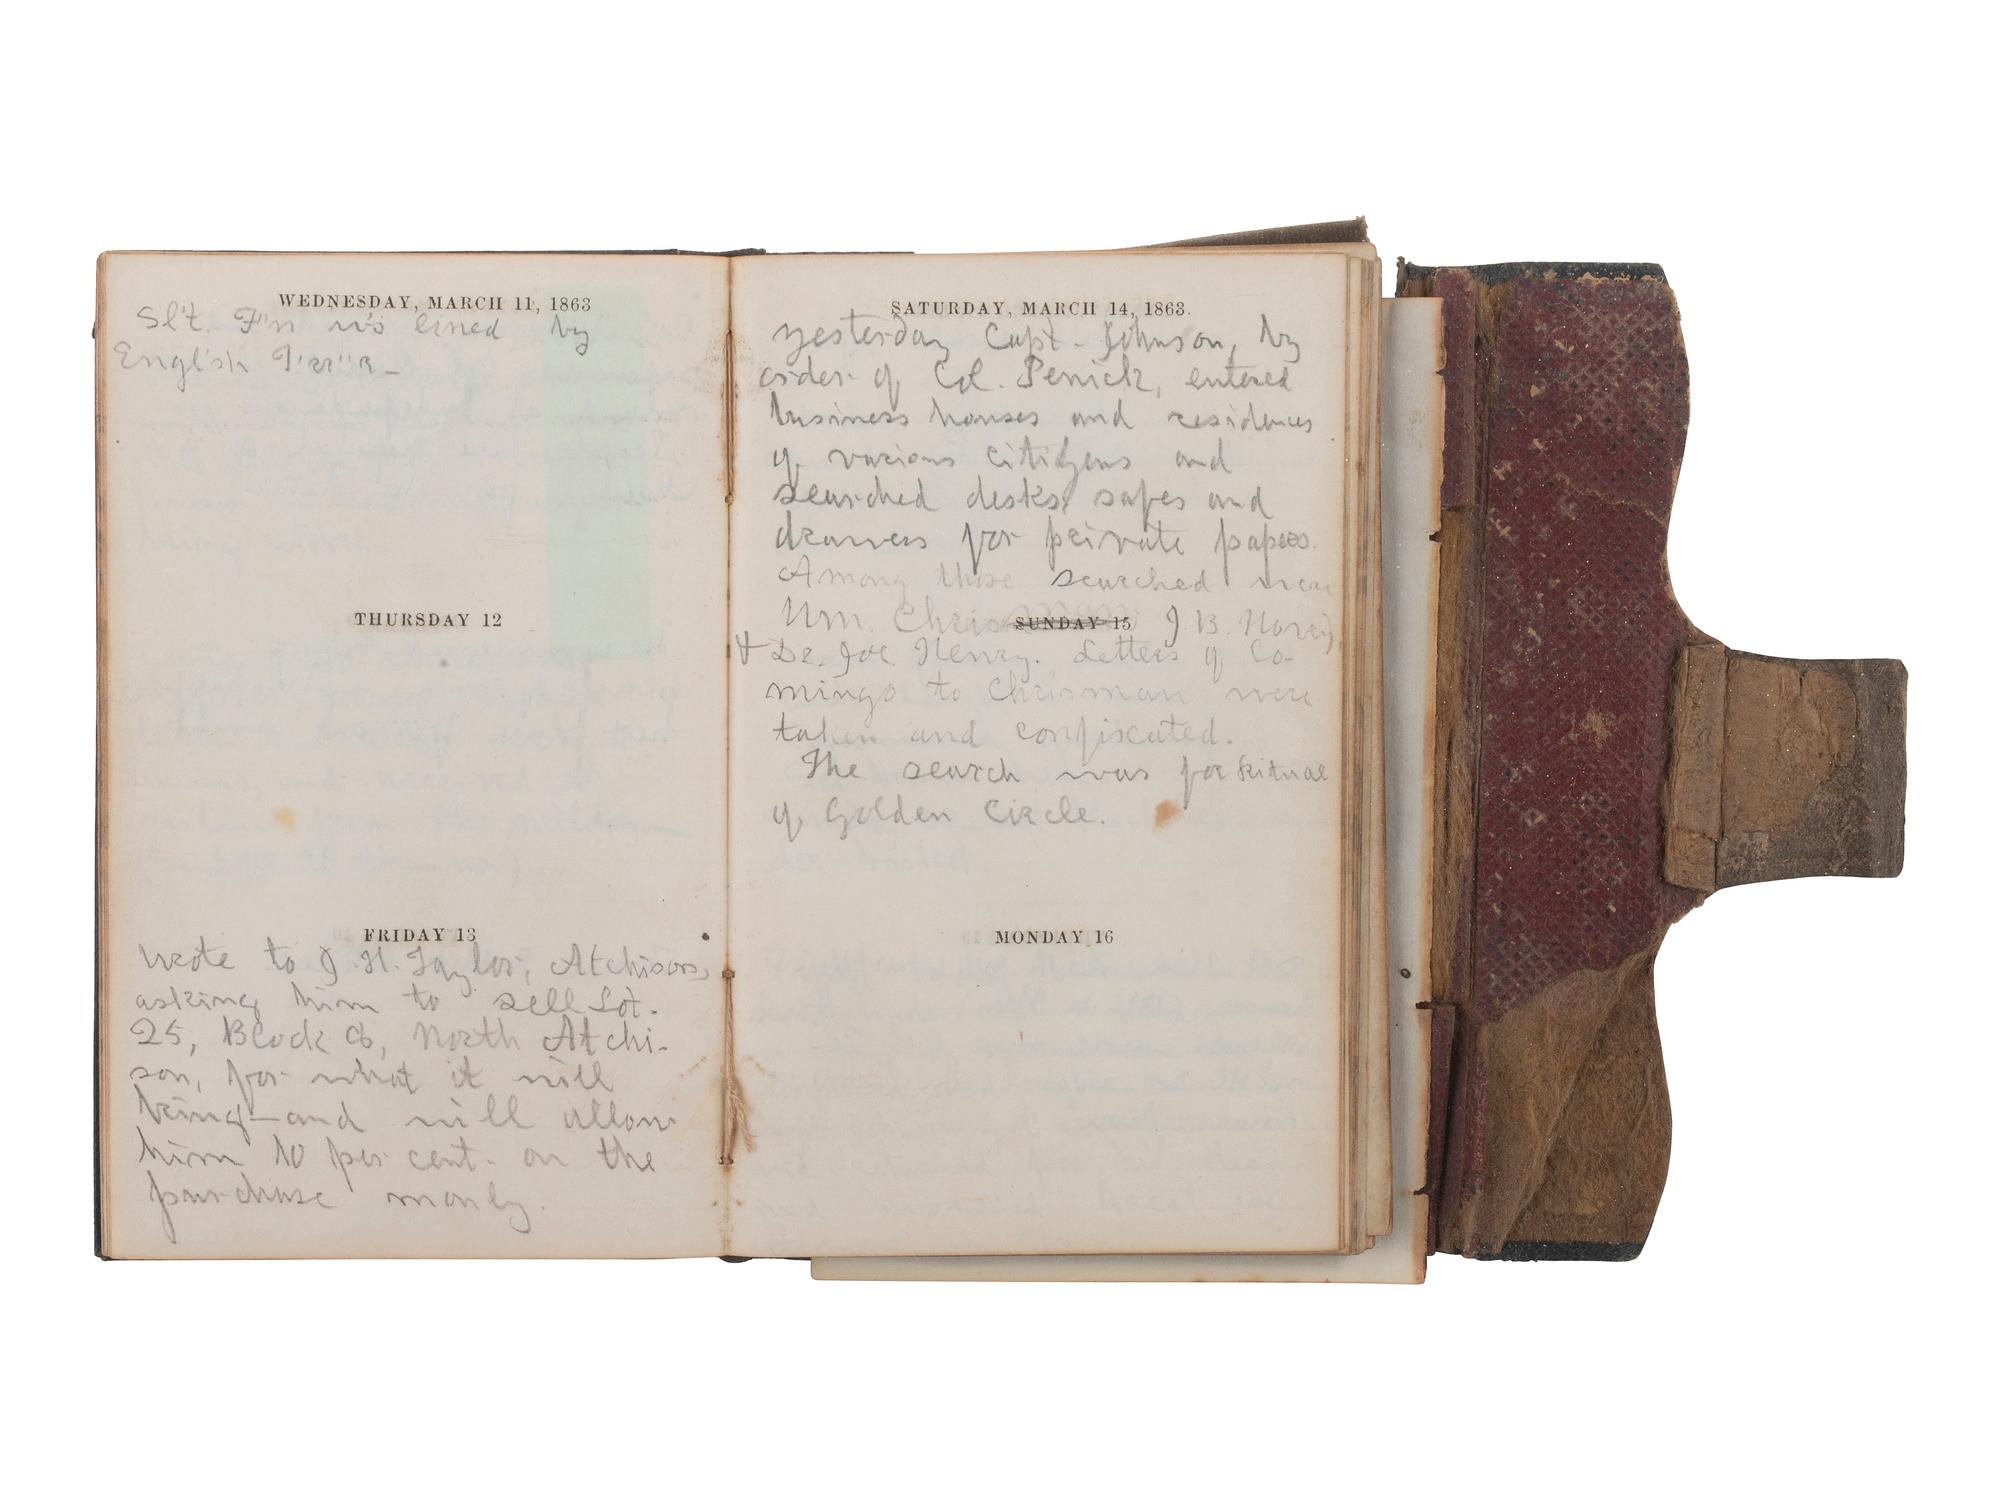 WEDNESDAY, MARCH 11, 1863
Slt. F"n w's lined by
English
THURSDAY 12
FRIDAY 13
Wrote to J. H. Taylor, Atchison,
asking him to sell Lot.
25, Block 8, North Atchi-
son, for what it will
bring—and will allow
him 10 per cent. on the
purchase money.
SATURDAY, MARCH 14, 1863.
yesterday Capt. Johnson, by
order of Col. Penick, entered
business houses and residences
of various citizens and
searched desks, safes and
drawers for private papers.
Among those searched were
Wm. Chrisman J. B. Hovey,
SUNDAY 15
& Dr. Joe Henry. Letters of Co-
mingo to Chrisman were
taken and confiscated.
The search was for Ritual
of Golden Circle.
MONDAY 16